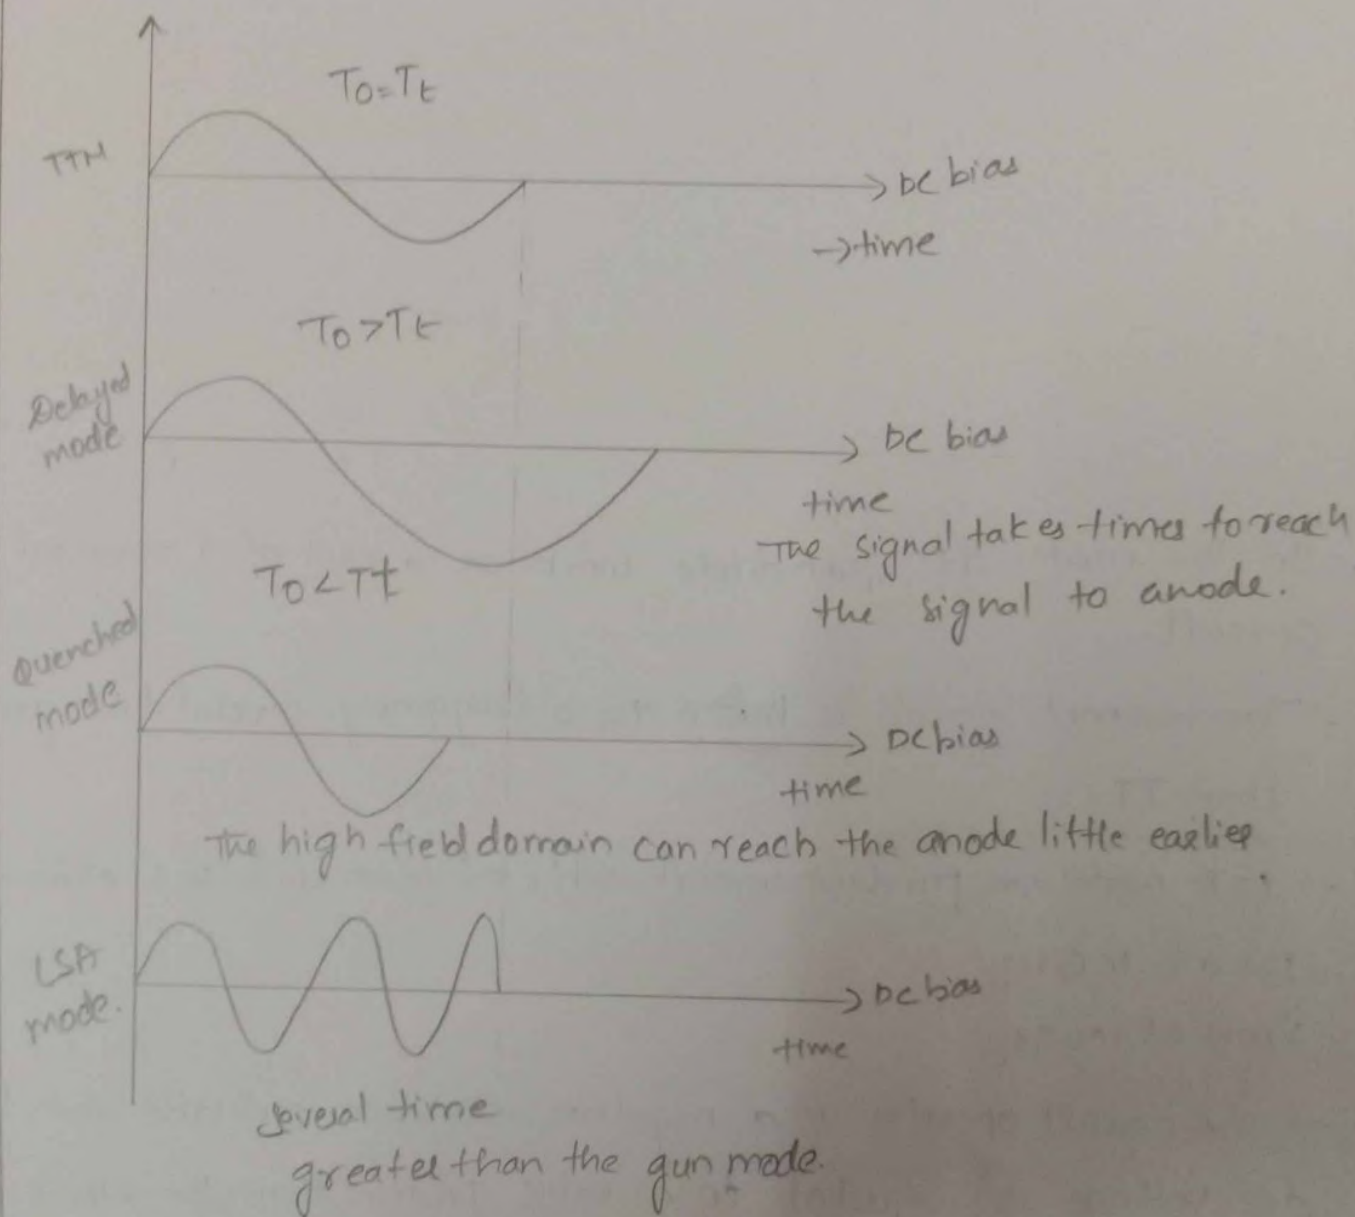 To=Tt
TTM
DC bias
→time
To>Tt
Delayed
mode
DC bias
time
The signal takes times to reach
the signal to anode.
To<Tt
Quenched
mode
DC bias
time
The high field domain can reach the anode little earlier
LSA
mode.
DC bias
time
several time
greater than the gun mode.